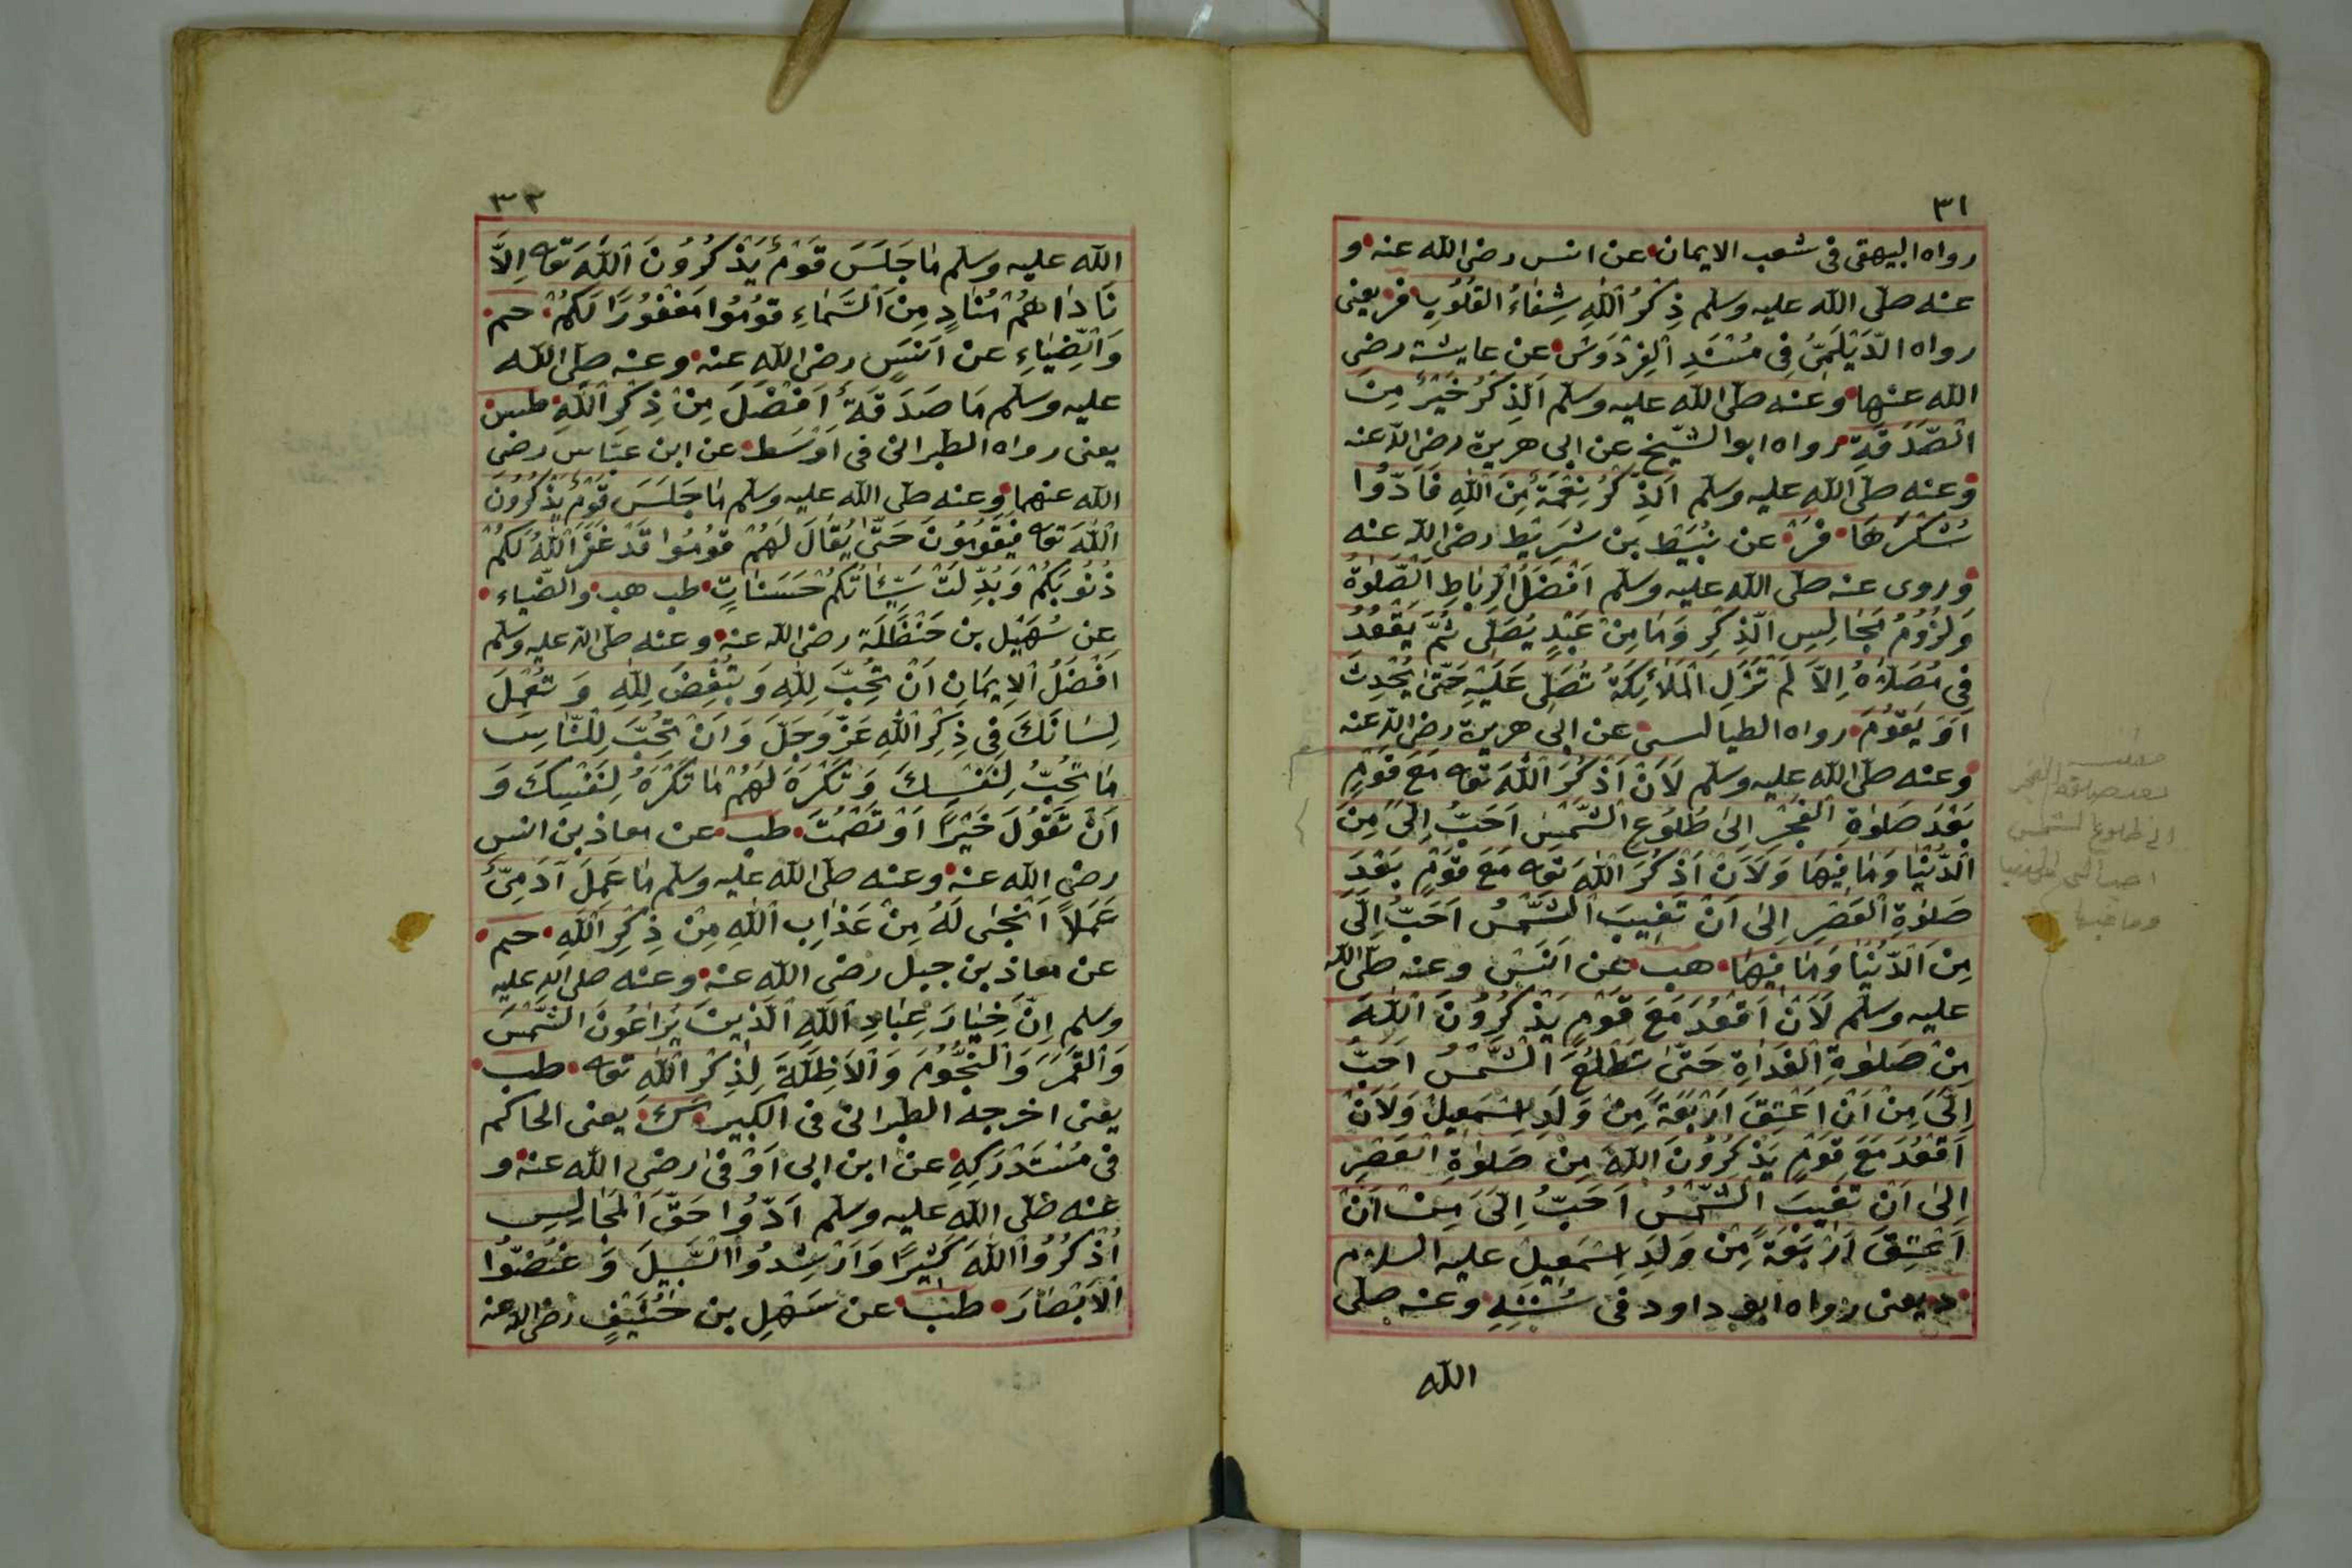 ٣١
رواه البيهقى فى شعب الايمان عن انس رضى الله عنه و
عنه صلّى الله عليه وسلم ذِكْرُ اللّٰهِ شِفَاءُ القُلُوبِ فر يعنى
رواه الدَّيْلَمِىّ فِى مُسْنَدِ الْفِرْدَوْسِ عن عايشة رضى
الله عنها وعنه صلّى الله عليه وسلم اَلذِّكْرُ خَيْرٌ مِنَ
الصَّدَقَةِ رواه ابو الشّيخ عن ابى هريرة رضى الله عنه
وعنه صلّى الله عليه وسلم اَلذِّكْرُ نِعْمَةٌ مِنَ اللّٰهِ فَاَدُّوا
شُكْرَهَا فر عن نُبَيْطِ بن شَرِيْط رضى الله عنه
وروى عنه صلّى الله عليه وسلم اَفْضَلُ الرِّبَاطِ الصَّلٰوةُ
وَلُزُومُ مَجَالِسِ الذِّكْرِ وَمَا مِنْ عَبْدٍ يُصَلِّى ثُمَّ يَقْعُدُ
فِى مُصَلَّاهُ اِلاَّ لَمْ تَزَلِ الْمَلاَئِكَةُ تُصَلِّى عَلَيْهِ حَتّٰى يُحْدِثَ
اَوْ يَقُومَ رواه الطيالسى عن ابى هريرة رضى الله عنه
وعنه صلّى الله عليه وسلم لَاَنْ اَذْكُرَ اللّٰهَ تعه مَعَ قَوْمٍ
بَعْدَ صَلٰوةِ الْفَجْرِ اِلىٰ طُلُوعِ الشَّمْسِ اَحَبُّ اِلَىَّ مِنَ
الدُّنْيَا وَمَا فِيهَا وَلَاَنْ اَذْكُرَ اللّٰهَ تعه مَعَ قَوْمٍ بَعْدَ
صَلٰوةِ الْعَصْرِ اِلىٰ اَنْ تَغِيبَ الشَّمْسُ اَحَبُّ اِلَىَّ
مِنَ الدُّنْيَا وَمَا فِيهَا هب عن اَنَسٍ وعنه صلّى الله
عليه وسلم لَاَنْ اَقْعُدَ مَعَ قَوْمٍ يَذْكُرُونَ اللّٰهَ
مِنْ صَلٰوةِ الْغَدَاةِ حَتّٰى تَطْلُعَ الشَّمْسُ اَحَبُّ
اِلَىَّ مِنْ اَنْ اَعْتِقَ اَرْبَعَةً مِنْ وَلَدِ اِسْمَعِيلَ وَلَاَنْ
اَقْعُدَ مَعَ قَوْمٍ يَذْكُرُونَ اللّٰهَ مِنْ صَلٰوةِ الْعَصْرِ
اِلىٰ اَنْ تَغِيبَ الشَّمْسُ اَحَبُّ اِلَىَّ مِنْ اَنْ
اَعْتِقَ اَرْبَعَةً مِنْ وَلَدِ اِسْمَعِيلَ عليه السلام
د يعنى رواه ابو داود فى سُنَنِهِ وعنه صلى
الله
بعد صلوة الفجر
الى طلوع الشمس
احب الى من الدنيا
وما فيها
٣٢
الله عليه وسلم مَا جَلَسَ قَوْمٌ يَذْكُرُونَ اللّٰهَ تعه اِلاَّ
نَادَاهُمْ مُنَادٍ مِنَ السَّمَاءِ قُومُوا مَغْفُورًا لَكُمْ حم
وَالضِّيَاءِ عن اَنَسٍ رضى الله عنه وعنه صلّى الله
عليه وسلم مَا صَدَقَةٌ اَفْضَلَ مِنْ ذِكْرِ اللّٰهِ طس
يعنى رواه الطبرانى فى اَوْسَط عن ابن عبّاس رضى
الله عنهما وعنه صلى الله عليه وسلم مَا جَلَسَ قَوْمٌ يَذْكُرُونَ
اللّٰهَ تعه فَيَقُومُونَ حَتّٰى يُقَالَ لَهُمْ قُومُوا قَدْ غَفَرَ اللّٰهُ لَكُمْ
ذُنُوبَكُمْ وَبُدِّلَتْ سَيِّئَاتُكُمْ حَسَنَاتٍ طب هب والضّياء
عن سُهَيْل بن حَنْظَلَة رضى الله عنه وعنه صلّى الله عليه وسلم
اَفْضَلُ الْاِيمَانِ اَنْ تُحِبَّ لِلّٰهِ وَتُبْغِضَ لِلّٰهِ وَتُعْمِلَ
لِسَانَكَ فِى ذِكْرِ اللّٰهِ عَزَّ وَجَلَّ وَاَنْ تُحِبَّ لِلنَّاسِ
مَا تُحِبُّ لِنَفْسِكَ وَتَكْرَهَ لَهُمْ مَا تَكْرَهُ لِنَفْسِكَ وَ
اَنْ تَقُولَ خَيْرًا اَوْ تَصْمُتَ طب عن معاذ بن انس
رضى الله عنه وعنه صلّى الله عليه وسلم مَا عَمِلَ آدَمِىٌّ
عَمَلاً اَنْجٰى لَهُ مِنْ عَذَابِ اللّٰهِ مِنْ ذِكْرِ اللّٰهِ حم
عن معاذ بن جبل رضى الله عنه وعنه صلى الله عليه
وسلم اِنَّ خِيَارَ عِبَادِ اللّٰهِ الَّذِينَ يُرَاعُونَ الشَّمْسَ
وَالْقَمَرَ وَالنُّجُومَ وَالْاَظِلَّةَ لِذِكْرِ اللّٰهِ تعه طب
يعنى اخرجه الطبرانى فى الكبير ك يعنى الحاكم
فى مُسْتَدْرَكِهِ عن ابن ابى اَوْفىٰ رضى الله عنه و
عنه صلّى الله عليه وسلم اَدُّوا حَقَّ الْمَجَالِسِ
اُذْكُرُوا اللّٰهَ كَثِيرًا وَاَرْشِدُوا السَّبِيلَ وَغُضُّوا
الْاَبْصَارَ طب عن سَهْلِ بن حُنَيْفٍ رضى الله عنه